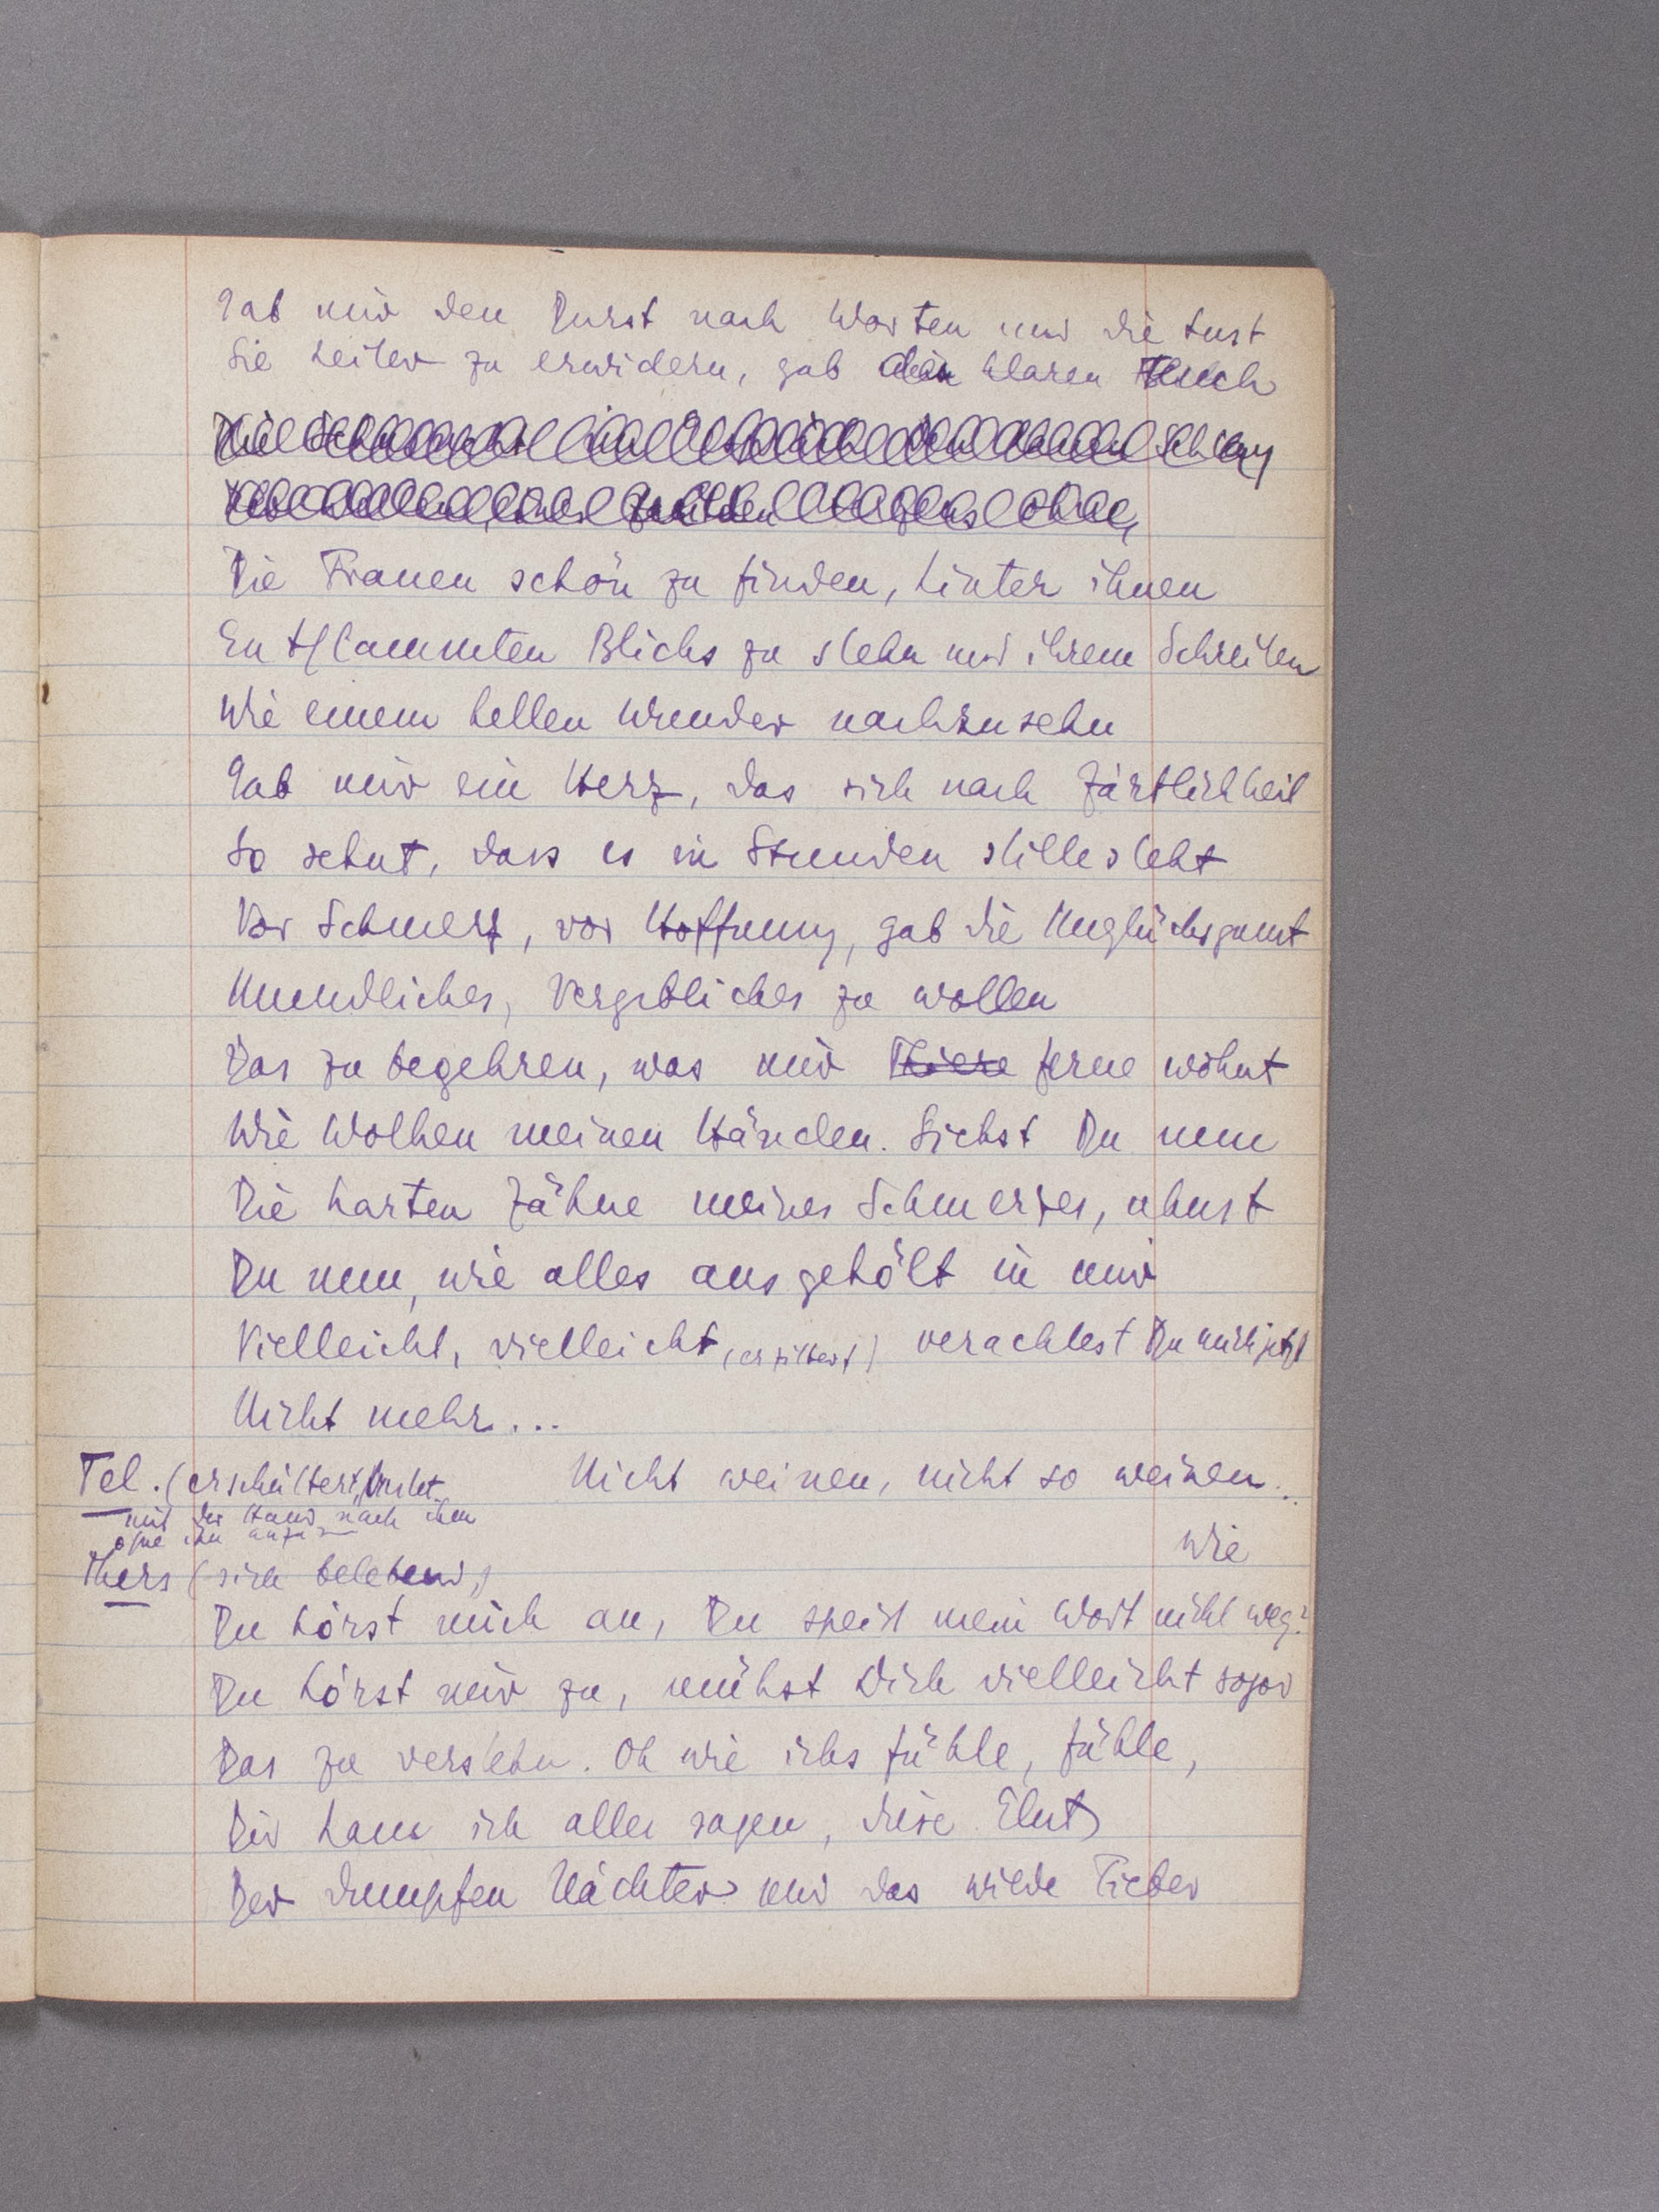 Gab mir den Durst nach Worten und die Lust
Sie heiter zu erwidern, gab den klaren Fluch
Die Frauen schön zu finden, hinter ihnen
Entflammten Blicks zu stehn und ihrem Schreiten
Wie einem hellen Wunder nachzusehn
Gab mir ein Herz, das sich nach Zärtlichkeit
So sehnt, dass es in Stunden stille steht
Vor Schmerz, vor Hoffnung, gab die Unglücksgunst
Unendliches, Vergebliches zu wollen
Das zu begehren, was mir ferne wohnt
Wie Wolken meinen Händen. Siehst Du nun
Die harten Zähne meines Schmerzes, ahnst
Du nun, wie alles ausgehölt in mir
Vielleicht, vielleicht, (er zittert) verachtest Du mich jetzt
Nicht mehr...
Tel. (erschüttert, Nicht weinen, nicht so weinen..
mit der Hand nach ihm
ohne ihn
Thers (sich belebend,) Wie
Du hörst mich an, Du speist mein Wort nicht weg?
Du hörst mir zu, mühst Dich vielleicht sogar
Das zu verstehn. Oh wie ichs fühle, fühle,
Dir kann ich alles sagen, diese Glut
Der dumpfen Nächte und das wilde Fieber